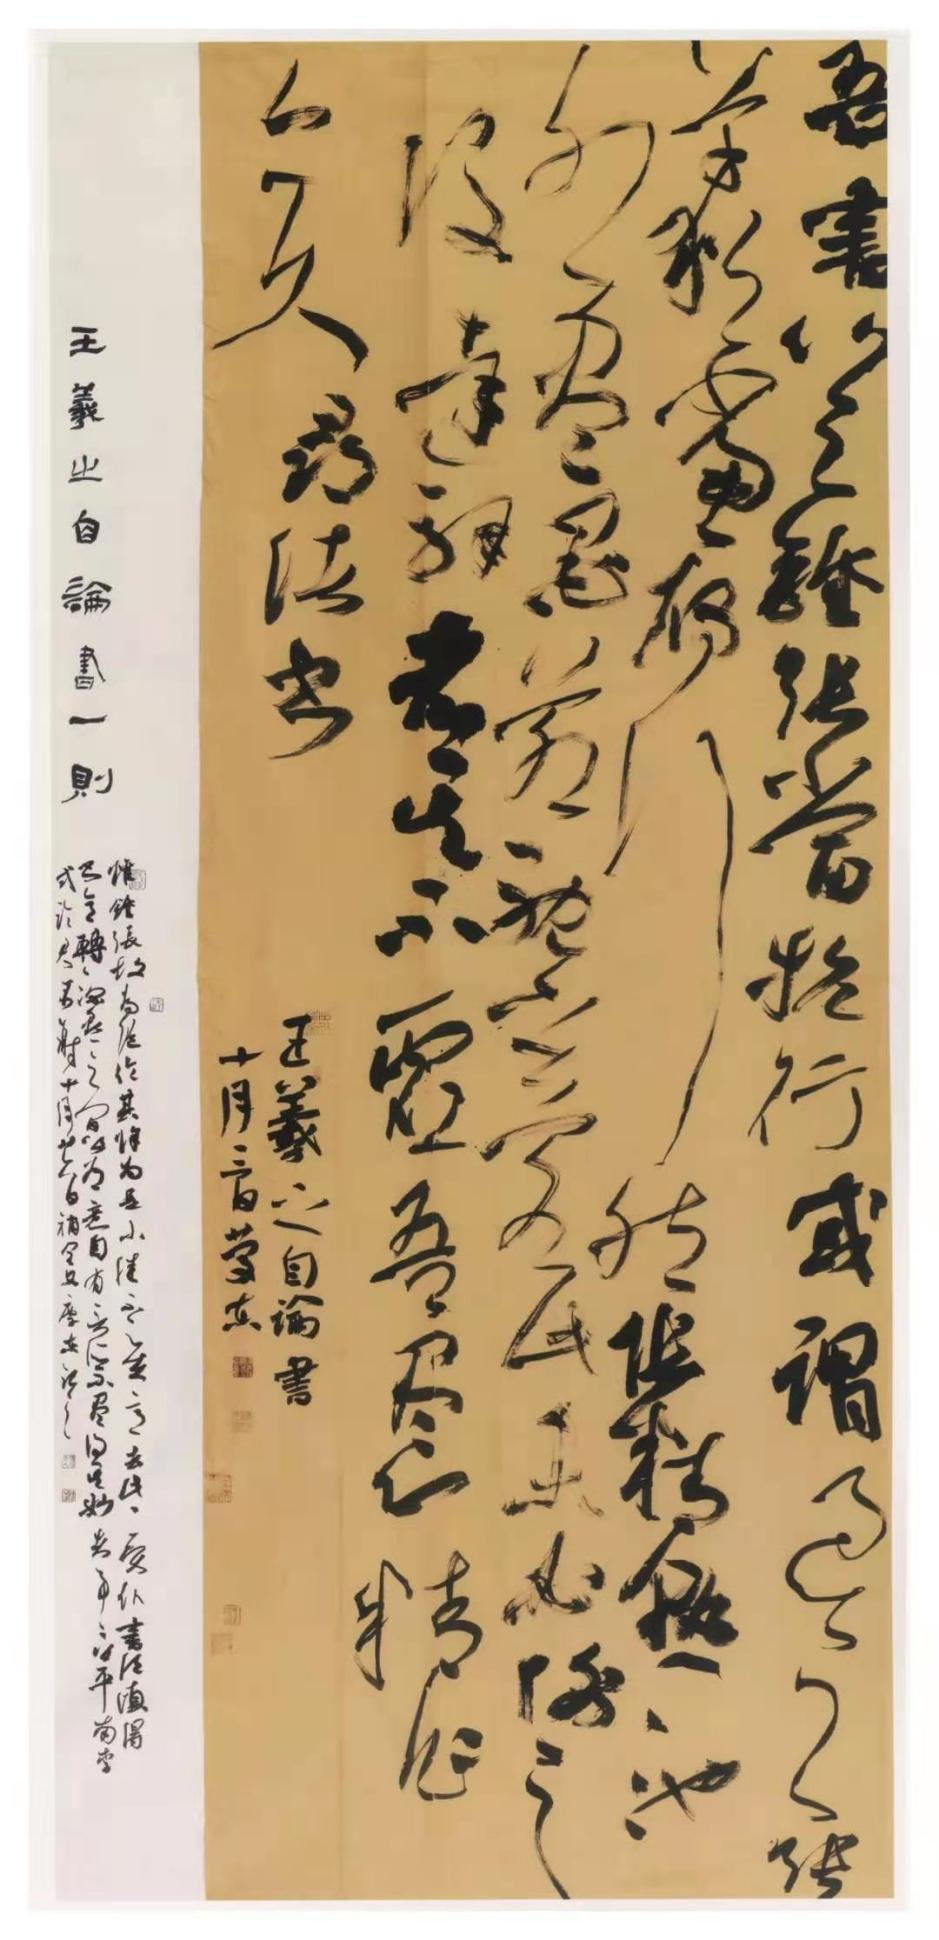 吾書比之鍾張當抗行或謂過之張
草猶當雁行然張精熟池
水盡墨若耽之若此未必謝之
後達解者其不虛吾盡心精作
亦久尋書
王羲之自論書
十月二日
王羲之自論書一則
惟鍾張故為絕倫其餘為是小佳不足在意去此二賢僕書次之須得
書意轉深點畫之間皆有意自有言所不盡得其妙者事事皆然平南李
式論君不謝十月日補